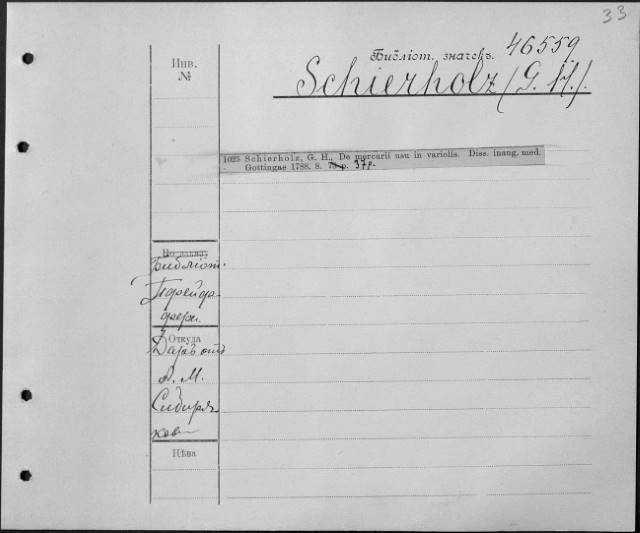 33
46559
Инв.
№
Библіот. значекъ.
Schierholz (G. H.).
1025 Schierholz, G. H., De mercurii usu in variolis. Diss. inaug. med.
Gottingae 1788. 8. p. 37 p.
Библіот.
Пфейф-
фера.
Откуда
Даръ отъ
А. М.
Сибиря-
кова
Цѣна